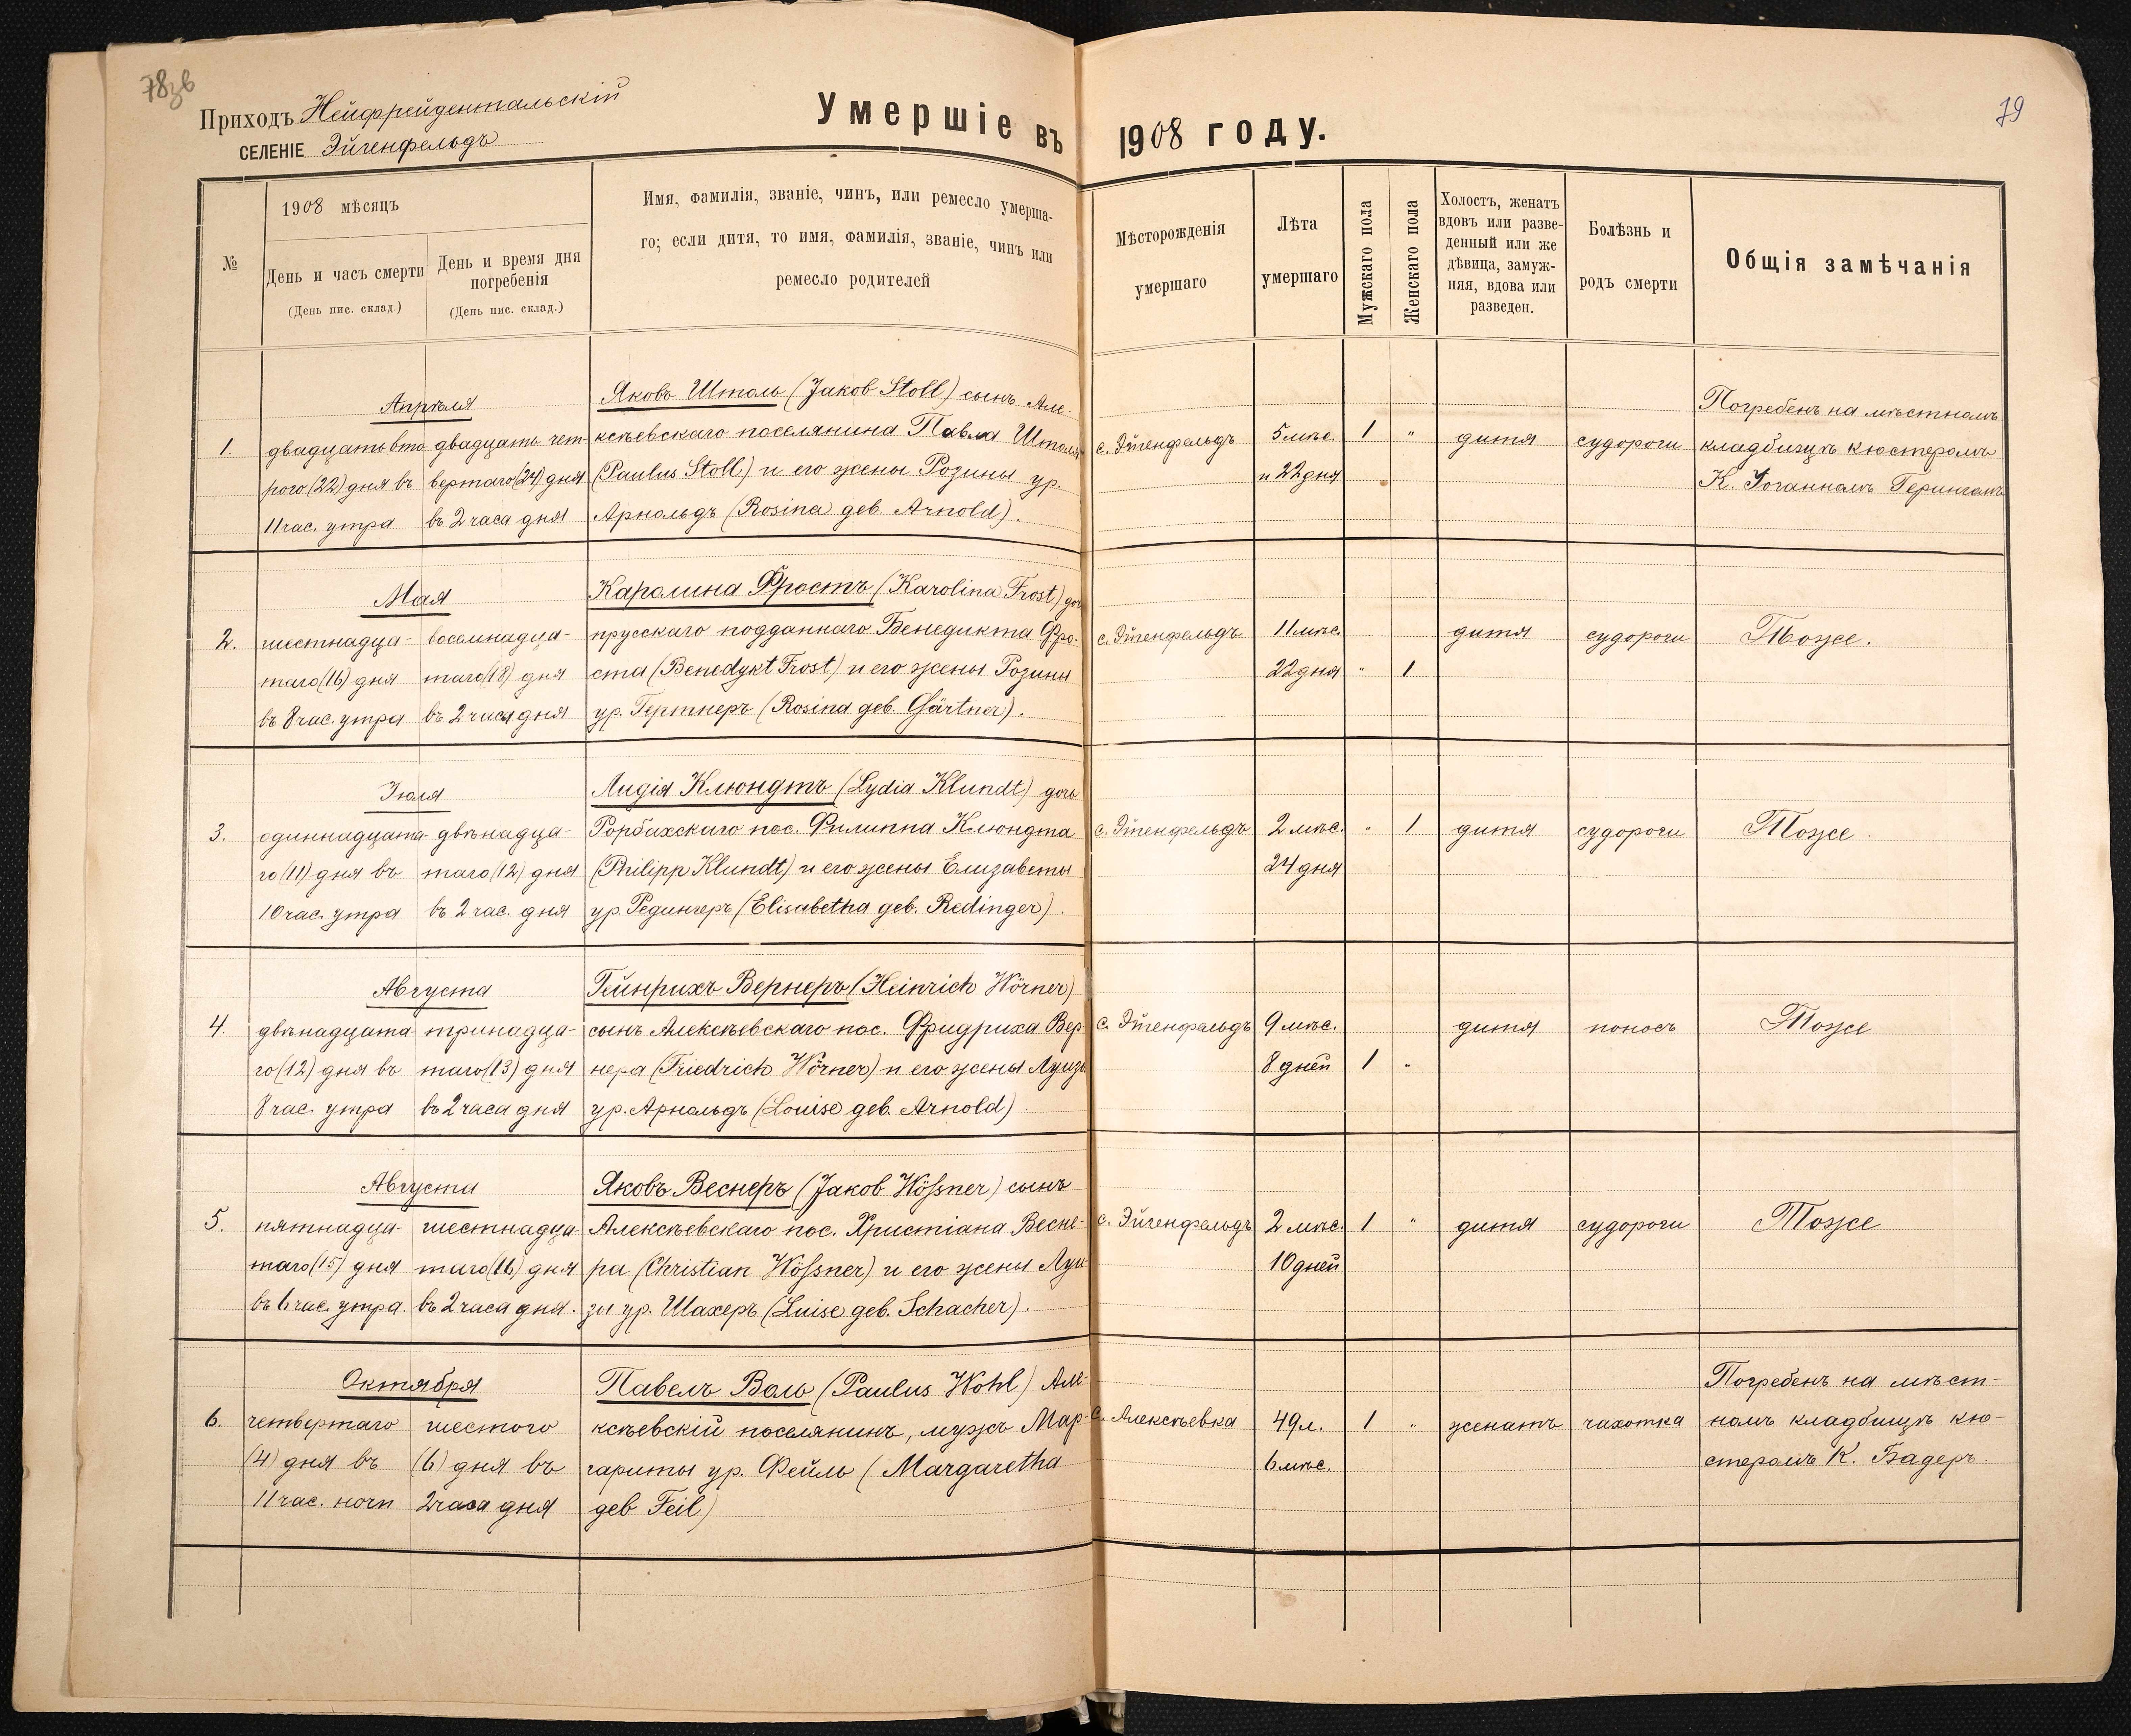 78об
79
Приходъ Нейфрейдентальскій
СЕЛЕНІЕ Эйгенфельдъ
Умершіе въ 1908 году.
№
1908 мѣсяцъ
День и часъ смерти
(День пис. склад.)
День и время дня
погребенія
(День пис. склад.)
Имя, фамилія, званіе, чинъ, или ремесло умерша-
го; если дитя, то имя, фамилія, званіе, чинъ или
ремесло родителей
Мѣсторожденія
умершаго
Лѣта
умершаго
Мужскаго пола
Женскаго пола
Холостъ, женатъ
вдовъ или разве-
денный или же
дѣвица, замуж-
няя, вдова или
разведен.
Болѣзнь и
родъ смерти
Общія замѣчанія
1.
Апрѣля
двадцать вто-
рого (22) дня въ
11 час. утра
двадцать чет-
вертаго (24) дня
въ 2 часа дня
Яковъ Штоль (Jakob Stoll) сынъ Але-
ксѣевскаго поселянина Павла Штоля
(Paulus Stoll) и его жены Розины ур.
Арнольдъ (Rosina geb. Arnold).
с. Эйгенфельдъ
5 мѣс.
и 22 дня
1 "
дитя
судороги
Погребенъ на мѣстномъ
кладбищѣ кюстеромъ
К. Іоганномъ Герингомъ
2.
Мая
шестнадца-
таго (16) дня
въ 8 час. утра
восемнадца-
таго (18) дня
въ 2 часа дня
Каролина Фростъ (Karolina Frost) дочь
прусскаго подданнаго Бенедикта Фро-
ста (Benedykt Frost) и его жены Розины
ур. Гертнеръ (Rosina geb. Gärtner).
с. Эйгенфельдъ
11 мѣс.
22 дня
" 1
дитя
судороги
Тоже.
3.
Іюля
одиннадцата-
го (11) дня въ
10 час. утра
двѣнадца-
таго (12) дня
въ 2 час. дня
Лидія Клюндтъ (Lydia Klundt) дочь
Рорбахскаго пос. Филиппа Клюндта
(Philipp Klundt) и его жены Елизаветы
ур. Редингеръ (Elisabetha geb. Redinger).
с. Эйгенфельдъ
2 мѣс.
24 дня
" 1
дитя
судороги
Тоже.
4.
Августа
двѣнадцата-
го (12) дня въ
8 час. утра
тринадца-
таго (13) дня
въ 2 часа дня
Гейнрихъ Вернеръ (Heinrich Wörner)
сынъ Алексѣевскаго пос. Фридриха Вер-
нера (Friedrich Wörner) и его жены Луизы
ур. Арнольдъ (Louise geb. Arnold).
с. Эйгенфельдъ
9 мѣс.
8 дней
1 "
дитя
поносъ
Тоже
5.
Августа
пятнадца-
таго (15) дня
въ 6 час. утра
шестнадца-
таго (16) дня
въ 2 часа дня.
Яковъ Веснеръ (Jakob Wößner) сынъ
Алексѣевскаго пос. Христіана Весне-
ра (Christian Wößner) и его жены Луи-
зы ур. Шахеръ (Luise geb. Schacher).
с. Эйгенфельдъ
2 мѣс.
10 дней
1 "
дитя
судороги
Тоже
6.
Октября
четвертаго
(4) дня въ
11 час. ночи
шестого
(6) дня въ
2 часа дня
Павелъ Воль (Paulus Wohl) Але-
ксѣевскій поселянинъ, мужъ Мар-
гариты ур. Фейль (Margaretha
geb Feil)
с. Алексѣевка
49 л.
6 мѣс.
1 "
женатъ
чахотка
Погребенъ на мѣст-
номъ кладбищѣ кю-
стеромъ К. Бадеръ.